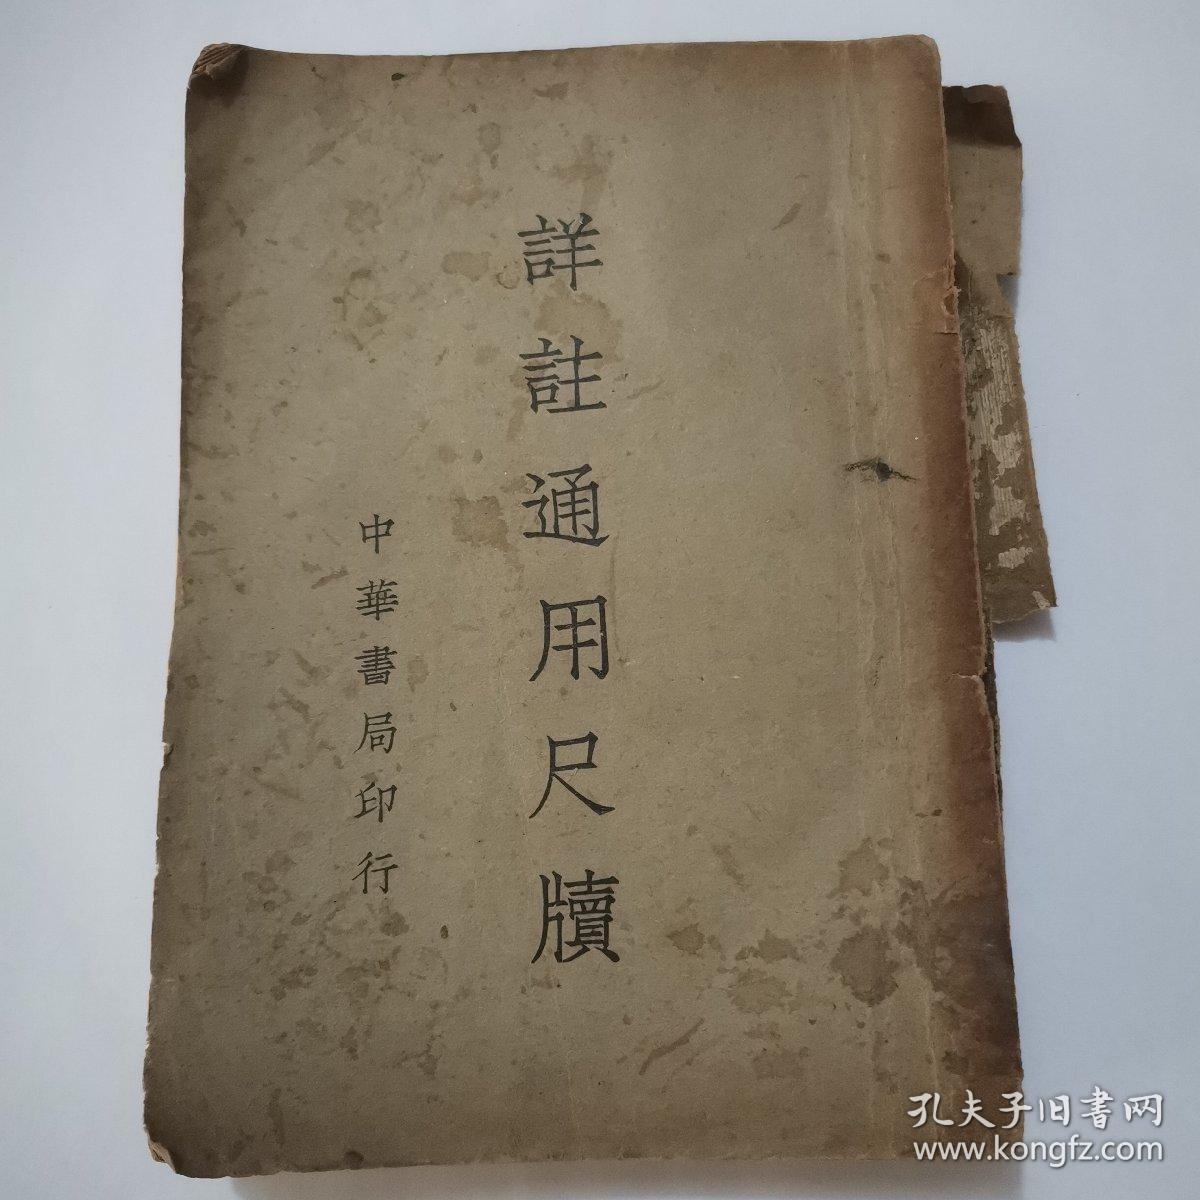 詳註通用尺牘
中華書局印行
孔夫子旧书网
www.kongfz.com